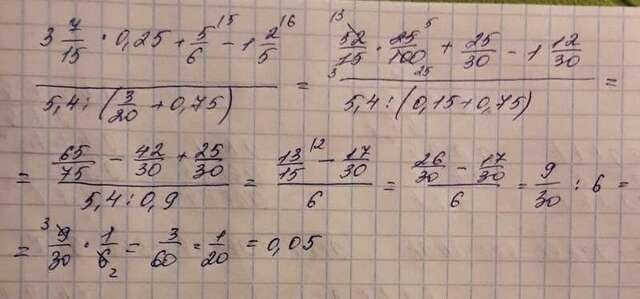 (3 7/15 · 0,25 + 5/6 - 1 2/5) / (5,4 : (3/20 + 0,75)) = (52/75 · 25/100 + 25/30 - 1 12/30) / (5,4 : (0,15 + 0,75)) =
= (65/75 - 42/30 + 25/30) / (5,4 : 0,9) = (13/15 - 17/30) / 6 = (26/30 - 17/30) / 6 = 9/30 : 6 =
= 9/30 · 1/6 = 3/60 = 1/20 = 0,05